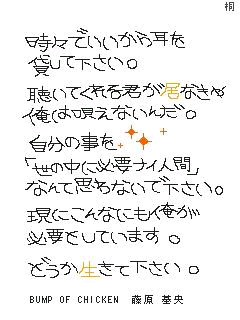 桐
時々でいいから耳を
貸して下さい。
聴いてくれる君が居なきゃ
俺は唄えないんだ。
自分の事を
「世の中に必要ナイ人間」
なんて思わないで下さい。
現にこんなにも俺が
必要としています。
どうか生きて下さい。
BUMP OF CHICKEN 藤原 基央